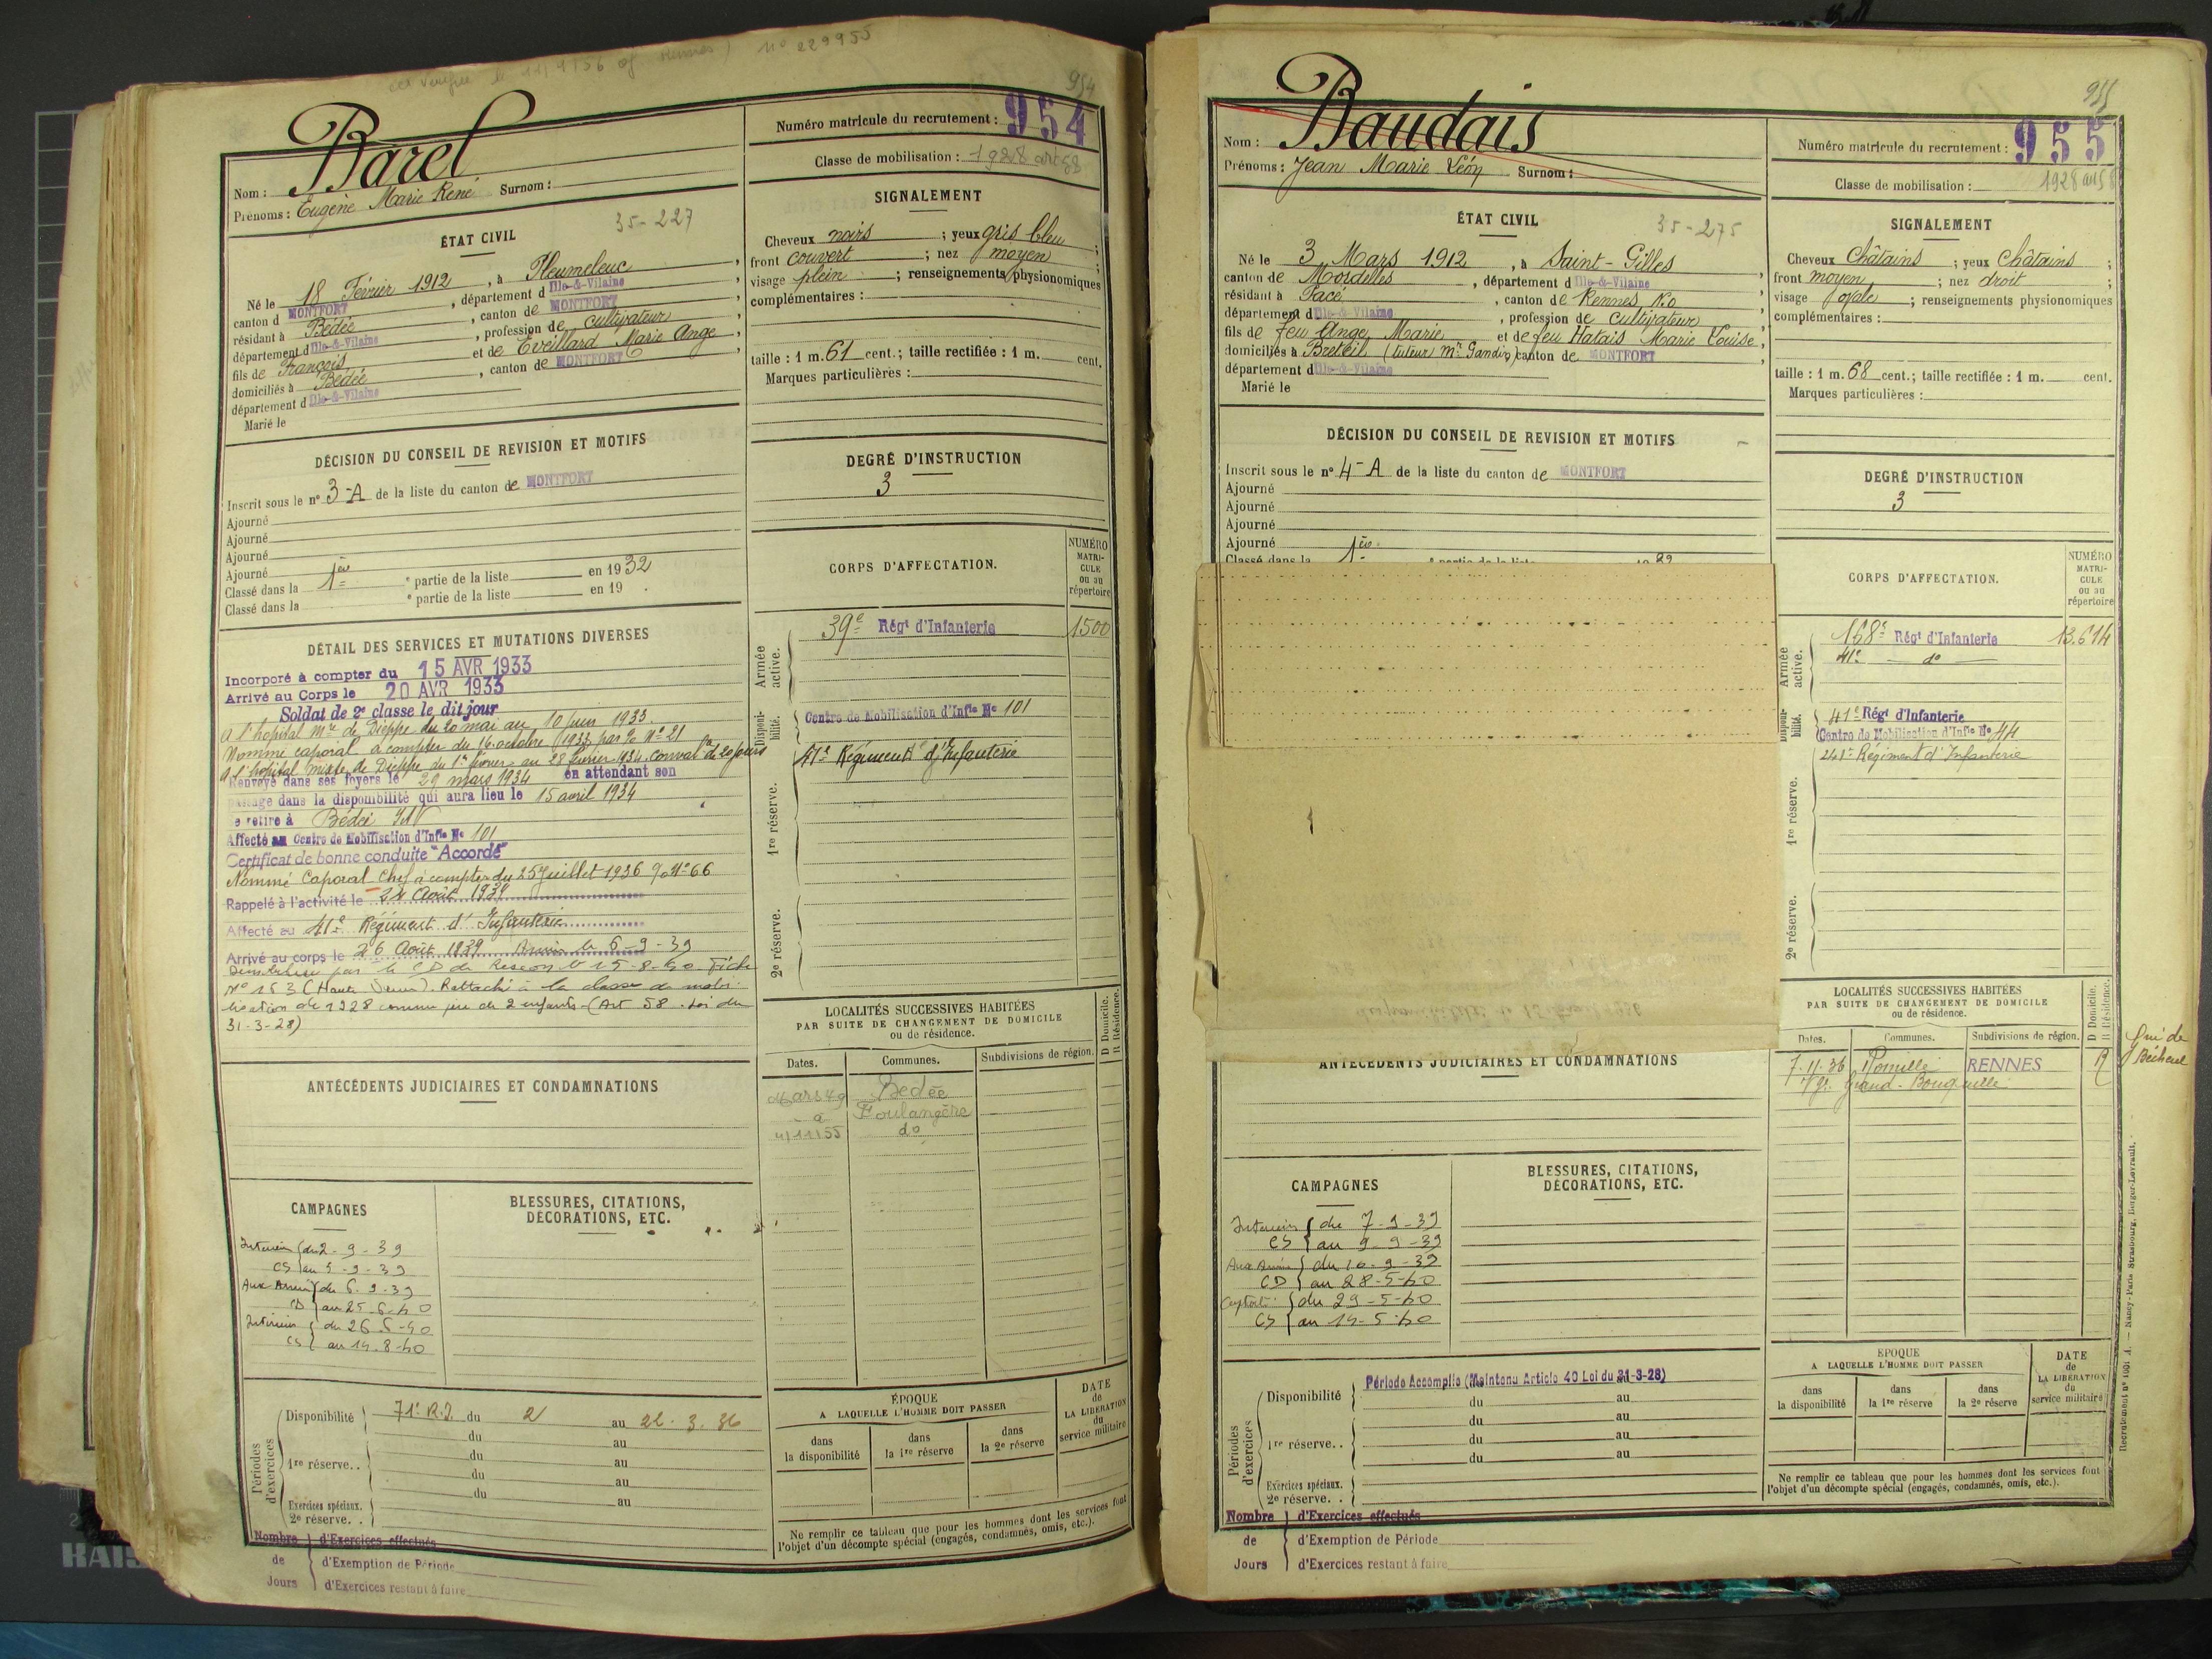 nº 229955
954
Barel
Nom :
Prénoms : Eugène Marie René Surnom :
Numéro matricule du recrutement : 954
Classe de mobilisation : 1928
35-227
ÉTAT CIVIL
Né le 18 Février 1912, à Pleumeleuc,
canton d MONTFORT, département d Ille-&-Vilaine,
résidant à Bédée, canton de MONTFORT,
département d Ille-&-Vilaine, profession de cultivateur,
fils de François, et de Eveillard Marie Ange,
domiciliés à Bédée, canton de MONTFORT,
département d Ille-&-Vilaine
Marié le
SIGNALEMENT
Cheveux noirs ; yeux gris bleu ;
front couvert ; nez moyen ;
visage plein ; renseignements physionomiques
complémentaires :
taille : 1 m. 61 cent. ; taille rectifiée : 1 m. cent.
Marques particulières :
DÉCISION DU CONSEIL DE REVISION ET MOTIFS
Inscrit sous le nº 3-A de la liste du canton de MONTFORT
Ajourné
Ajourné
Ajourné
Ajourné
Classé dans la 1ère partie de la liste en 1932
Classé dans la e partie de la liste en 19 .
DEGRÉ D'INSTRUCTION
3
DÉTAIL DES SERVICES ET MUTATIONS DIVERSES
Incorporé à compter du 15 AVR 1933
Arrivé au Corps le 20 AVR 1933
Soldat de 2e classe le dit jour
A l'hôpital Mre de Dieppe du 20 mai au 10 juin 1933.
Nommé caporal à compter du 16 octobre 1933 par Nº 21
A l'hôpital mixte de Dieppe du 1er février au 28 février 1934 conval de 20 jours
Renvoyé dans ses foyers le 29 mars 1934 en attendant son
passage dans la disponibilité qui aura lieu le 15 avril 1934
se retire à Bédée I&V
Affecté au Centre de Mobilisation d'Infie Nº 101
Certificat de bonne conduite "Accordé"
Nommé Caporal Chef à compter du 25 Juillet 1936 Nº 66
Rappelé à l'activité le 24 Août 1939
Affecté au 41e Régiment d'Infanterie
Arrivé au corps le 26 Août 1939 le 6-9-39
par le CD de le 15-8-40 Fiche
Nº 153 (Haute Vienne). Rattaché à la classe de mobi-
lisation de 1928 comme père de 2 enfants (Art 58. Loi du
31-3-28)
CORPS D'AFFECTATION.
NUMÉRO MATRI-CULE ou au répertoire
Armée active. 39e Régt d'Infanterie 1500
Disponibilité. Centre de Mobilisation d'Infie Nº 101
41e Régiment d'Infanterie
1re réserve.
2e réserve.
LOCALITÉS SUCCESSIVES HABITÉES
PAR SUITE DE CHANGEMENT DE DOMICILE
ou de résidence.
D Domicile. R Résidence.
Dates. Communes. Subdivisions de région.
Mars 49 Bedée
à Boulangère
4/11/55 do
ANTÉCÉDENTS JUDICIAIRES ET CONDAMNATIONS
CAMPAGNES
Intérieur du 2-9-39
CS au 5-9-39
Aux Armées du 6-9-39
CD au 25-6-40
Intérieur du 26-6-40
CS au 14-8-40
BLESSURES, CITATIONS,
DÉCORATIONS, ETC.
Périodes d'exercices
Disponibilité 71e R.I. du 2 au 22.3.36
du au
1re réserve.. du au
du au
du au
Exercices spéciaux.
2e réserve. .
Nombre d'Exercices effectués
de d'Exemption de Période
Jours d'Exercices restant à faire
ÉPOQUE
A LAQUELLE L'HOMME DOIT PASSER
dans la disponibilité
dans la 1re réserve
dans la 2e réserve
DATE de LA LIBÉRATION du service militaire
Ne remplir ce tableau que pour les hommes dont les services font
l'objet d'un décompte spécial (engagés, condamnés, omis, etc.).
955
Nom : Baudais
Prénoms : Jean Marie Léon Surnom :
Numéro matricule du recrutement : 955
Classe de mobilisation : 1928
ÉTAT CIVIL
35-275
Né le 3 Mars 1912, à Saint-Gilles,
canton de Mordelles, département d Ille-&-Vilaine
résidant à Pacé, canton de Rennes N.O
département d Ille-&-Vilaine, profession de cultivateur,
fils de feu Ange Marie et de feu Hatais Marie Louise,
domiciliés à Breteil (tuteur Mr Gandin) canton de MONTFORT,
département d Ille-&-Vilaine
Marié le
SIGNALEMENT
Cheveux Châtains ; yeux Châtains ;
front moyen ; nez droit ;
visage ovale ; renseignements physionomiques
complémentaires :
taille : 1 m. 68 cent. ; taille rectifiée : 1 m. cent.
Marques particulières :
DÉCISION DU CONSEIL DE REVISION ET MOTIFS
Inscrit sous le nº 4-A de la liste du canton de MONTFORT
Ajourné
Ajourné
Ajourné
Ajourné
Classé dans la 1ère partie de la liste 32
DEGRÉ D'INSTRUCTION
3
CORPS D'AFFECTATION.
NUMÉRO MATRI-CULE ou au répertoire
Armée active. 168e Régt d'Infanterie 13.614
41e do
Disponibilité. 41e Régt d'Infanterie
Centre de Mobilisation d'Infie Nº 44
41e Régiment d'Infanterie
1re réserve.
2e réserve.
LOCALITÉS SUCCESSIVES HABITÉES
PAR SUITE DE CHANGEMENT DE DOMICILE
ou de résidence.
D Domicile. R Résidence.
Dates. Communes. Subdivisions de région.
7.11.36 Romillé RENNES R
Vge Grand-Bouquille
Bécherel
ANTÉCÉDENTS JUDICIAIRES ET CONDAMNATIONS
CAMPAGNES
Intérieur du 7-9-39
CS au 9-9-39
Aux Armées du 10-9-39
CD au 28-5-40
Captivité du 29-5-40
CS au 14-5-40
BLESSURES, CITATIONS,
DÉCORATIONS, ETC.
Périodes d'exercices
Disponibilité Période Accomplie (Maintenu Article 40 Loi du 31-3-28)
du au
du au
1re réserve.. du au
du au
Exercices spéciaux.
2e réserve. .
Nombre d'Exercices effectués
de d'Exemption de Période
Jours d'Exercices restant à faire
ÉPOQUE
A LAQUELLE L'HOMME DOIT PASSER
dans la disponibilité
dans la 1re réserve
dans la 2e réserve
DATE de LA LIBÉRATION du service militaire
Ne remplir ce tableau que pour les hommes dont les services font
l'objet d'un décompte spécial (engagés, condamnés, omis, etc.).
Nancy-Paris-Strasbourg, Berger-Levrault.